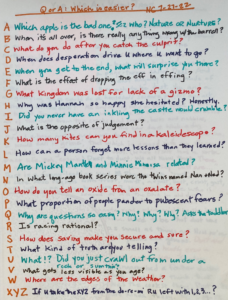 Q or A: Which is easier?
A Which apple is the bad one, Sir? Who? Nature or Nurture?
B When it's all over, is there really anything many of the barren?
C What do you do after you catch the culprit?
D When does desperation drive U where U want to go?
E When you get to the end, what will surprise you there?
F What is the effect of dropping the eff in effing?
G What Kingdom was lost for lack of a gizmo?
H Why was Hannah so happy she hesitated? Honestly.
I Did you never have an inkling the castle would crumble?
J What is the opposite of judgement?
K How many kites can you find in a kaleidoscope?
L How can a person forget more lessons than they learned?
M Are Mickey Mantle and Minnie Minoso related?
N In what long book series were the twins named Nan
O How do you tell an oxide from an oxalate?
P What proportion of people pander to pubescent fears?
Q Why are questions so easy? Why? Why? Why? Asks the toddler
R Is raging rational?
S How does saving make you secure and sore?
T What kind of truth are you telling?
U What!? Did you just crawl out from under a
rock or
V What gets less visible as you age?
W Where are the edges of the weather?
XYZ If U take the XYZ from the do-re-mi R U left with 1,2,3...?